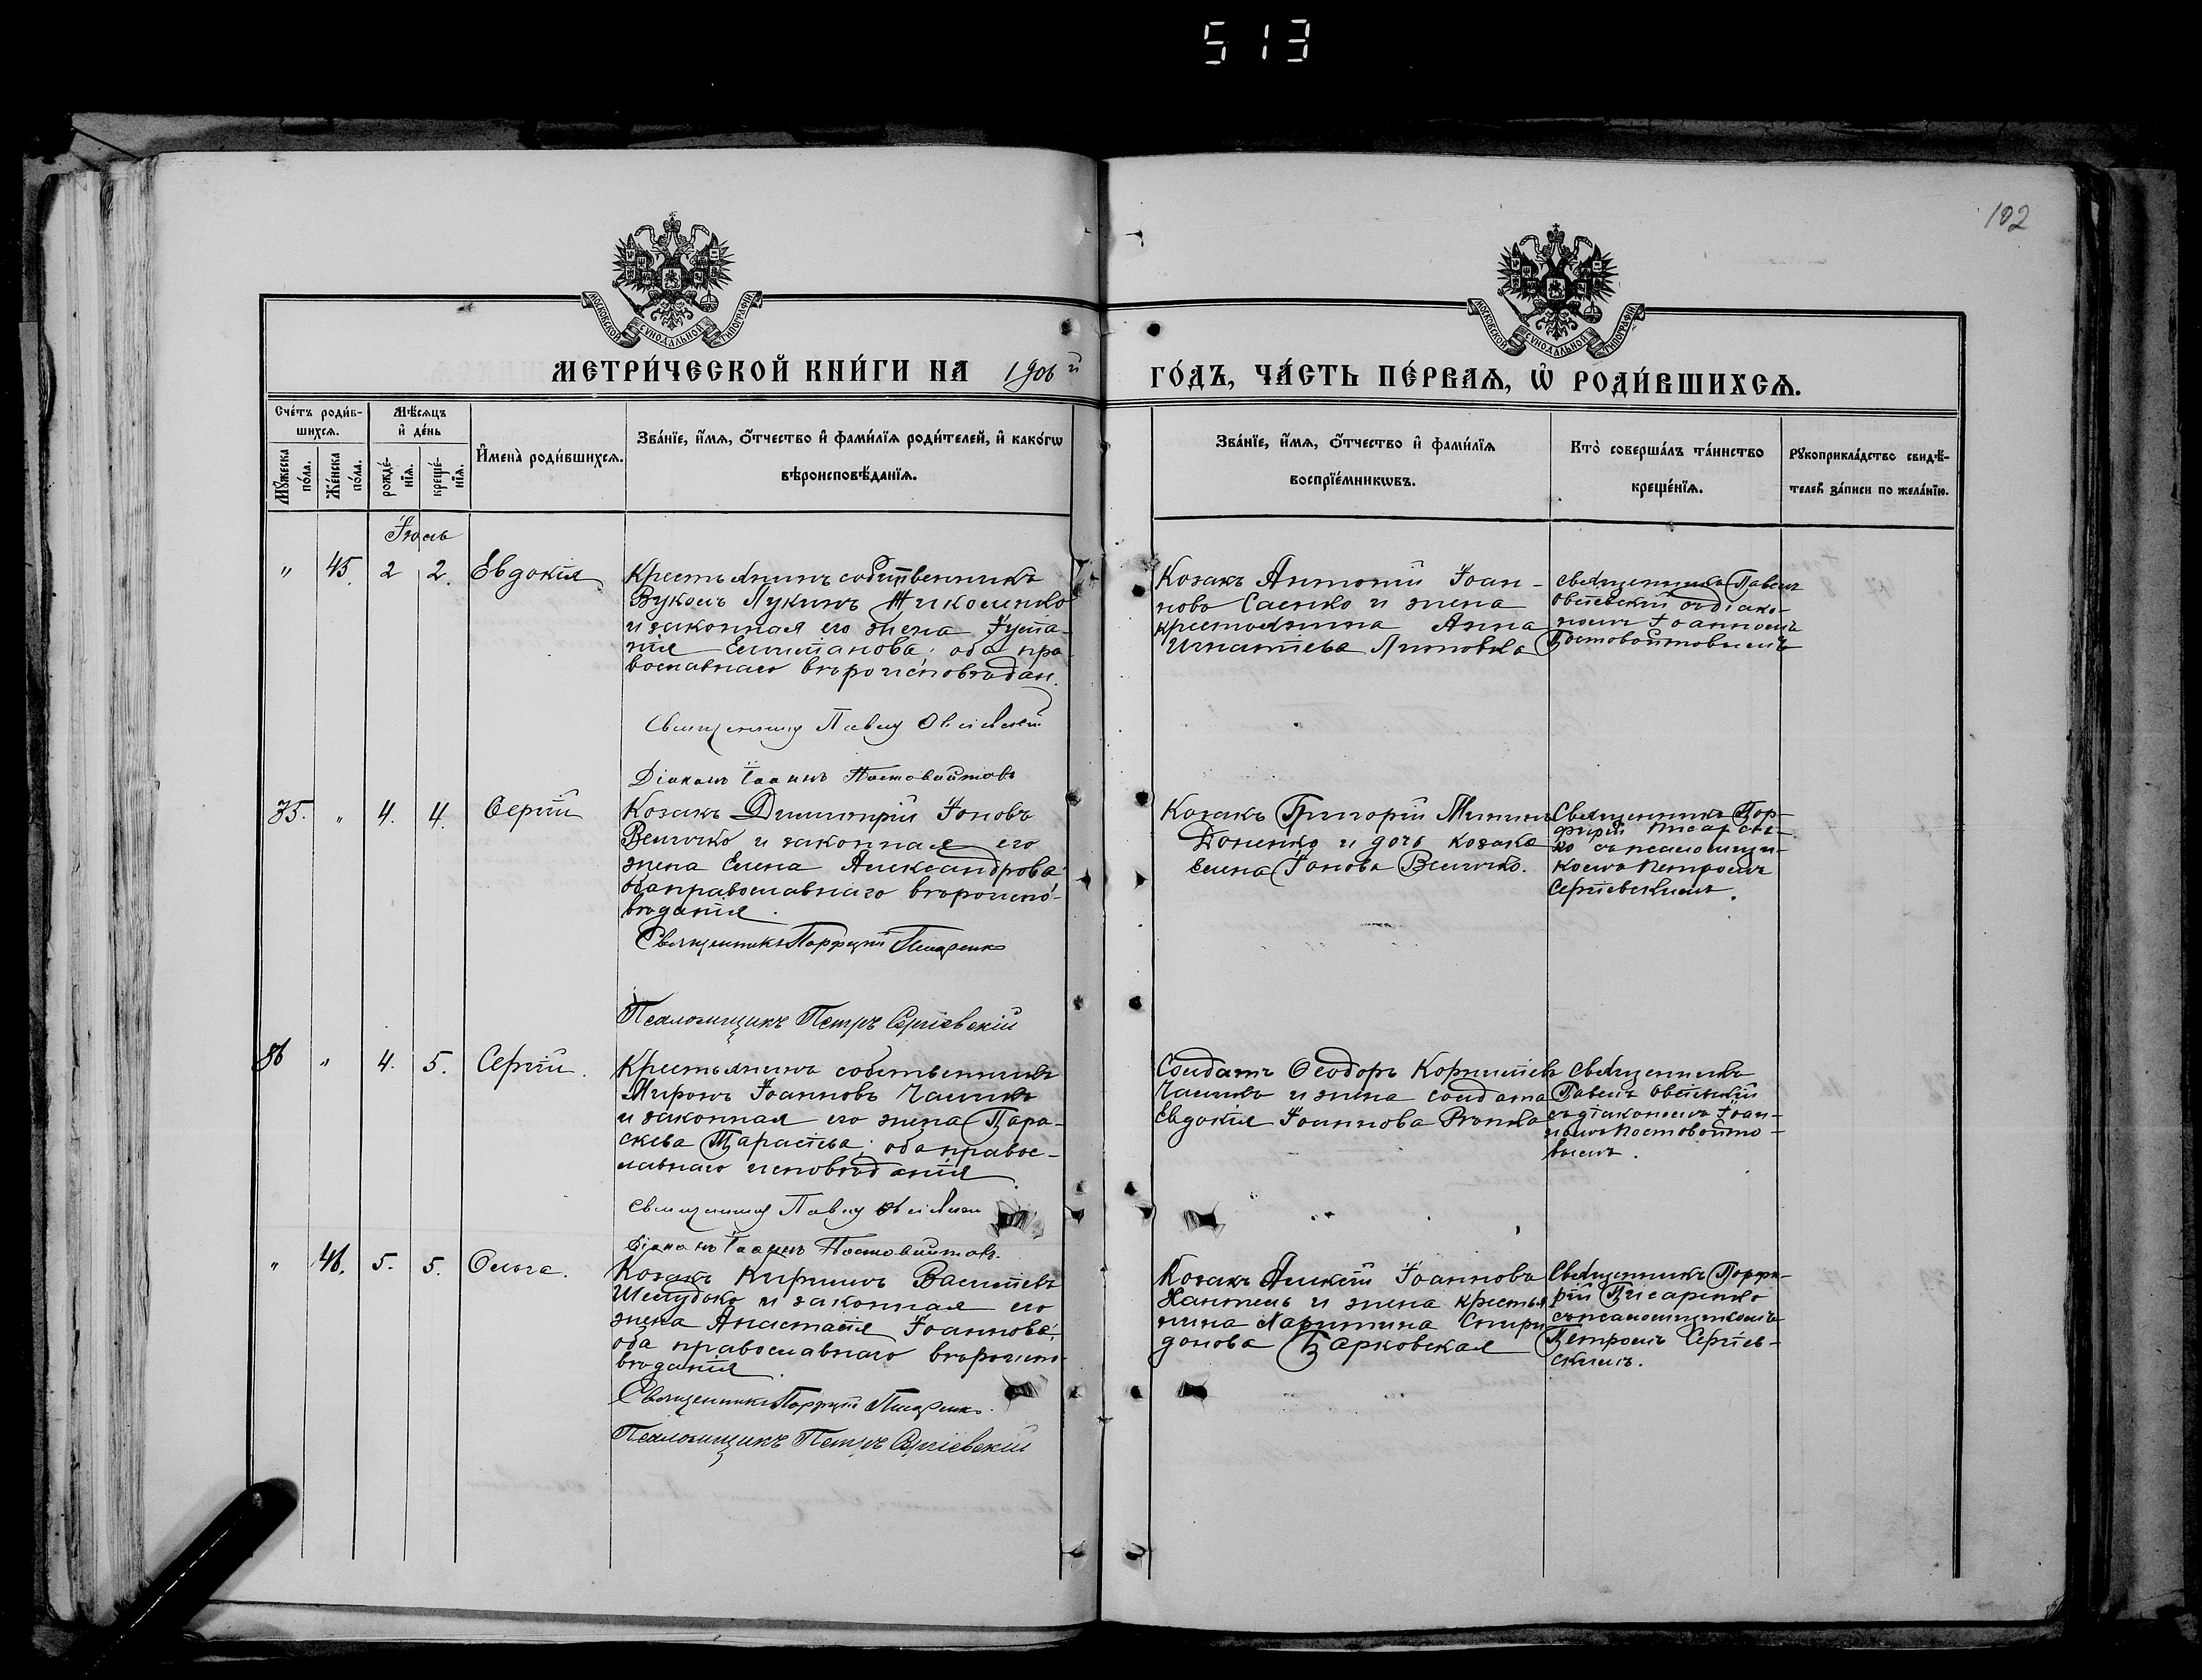 513
102
МОСКОВСКОЙ СѴНОДАЛЬНОЙ ТИПОГРАФІИ
МОСКОВСКОЙ СѴНОДАЛЬНОЙ ТИПОГРАФІИ
МЕТРИ́ЧЕСКОЙ КНИ́ГИ НА 1906 й
ГО́ДЪ, ЧА́СТЬ ПЕ́РВАѦ, Ѡ҆ РОДИ́ВШИХСѦ.
Сче́тъ роди́в-
шихсѧ.
Мꙋ́жеска по́ла.
Же́нска по́ла.
Мѣ́сѧцъ и҆ де́нь
рожде́-нїѧ.
креще́-нїѧ.
И҆мена̀ роди́вшихсѧ.
Зва́нїе, и҆́мѧ, ѻ҆́тчество и҆ фами́лїѧ роди́телей, и҆ како́гѡ
вѣроисповѣ́данїѧ.
Зва́нїе, и҆́мѧ, ѻ҆́тчество и҆ фами́лїѧ
воспрїе́мникѡвъ.
Кто̀ соверша́лъ та́инство
креще́нїѧ.
Рꙋкоприкла́дство свидѣ́-
телей за́писи по жела́нїю.
Іюль
" 45. 2 2. Евдокія
Крестьянинъ собственникъ
Вуколъ Лукинъ Николенко
и законная его жена Іуста-
нія ; оба пра-
вославнаго вѣроисповѣдан.
Священникъ Павелъ
Діаконъ Іоаннъ Постовойтовъ
Козакъ Антоній Іоан-
новъ Саенко и жена
крестьянина Анна
Игнатіева
Священникъ Павелъ
съ діако-
номъ Іоанномъ
Постовойтовымъ
35. " 4. 4. Сергій
Козакъ Димитрій Іоновъ
Величко и законная его
жена Елена Александрова
оба православнаго вѣроиспо-
вѣданія.
Священникъ Порфирій Писаренко
Псаломщикъ Петръ Сергіевскій
Козакъ Григорій Мининъ
Доненко и дочь козака
Елена Іонова Величко.
Священникъ Пор-
фирій Писарен-
ко съ псаломщи-
комъ Петромъ
Сергіевскимъ.
36 " 4. 5. Сергій.
Крестьянинъ собственникъ
Миронъ Іоанновъ
и законная его жена Пара-
скева Тарасіева; оба правос-
лавнаго исповѣданія.
Священникъ Павелъ
Діаконъ Іоаннъ Постовойтовъ.
Солдатъ Ѳеодоръ Корниліевъ
и жена солдата
Евдокія Іоаннова
Священникъ
Павелъ
съ діакономъ Іоан-
номъ Постовойто-
вымъ.
" 46. 5. 5. Ольга.
Козакъ Кириллъ Василіевъ
Шелудько и законная его
жена Анастасія Іоаннова;
оба православнаго вѣроиспо-
вѣданія.
Священникъ Порфирій Писаренко.
Псаломщикъ Петръ Сергіевскій
Козакъ Алексій Іоанновъ
и жена крестья-
нина Харитина Спири-
донова Барковская
Священникъ Порфи-
рій Писаренко
съ псаломщикомъ
Петромъ Сергіев-
скимъ.